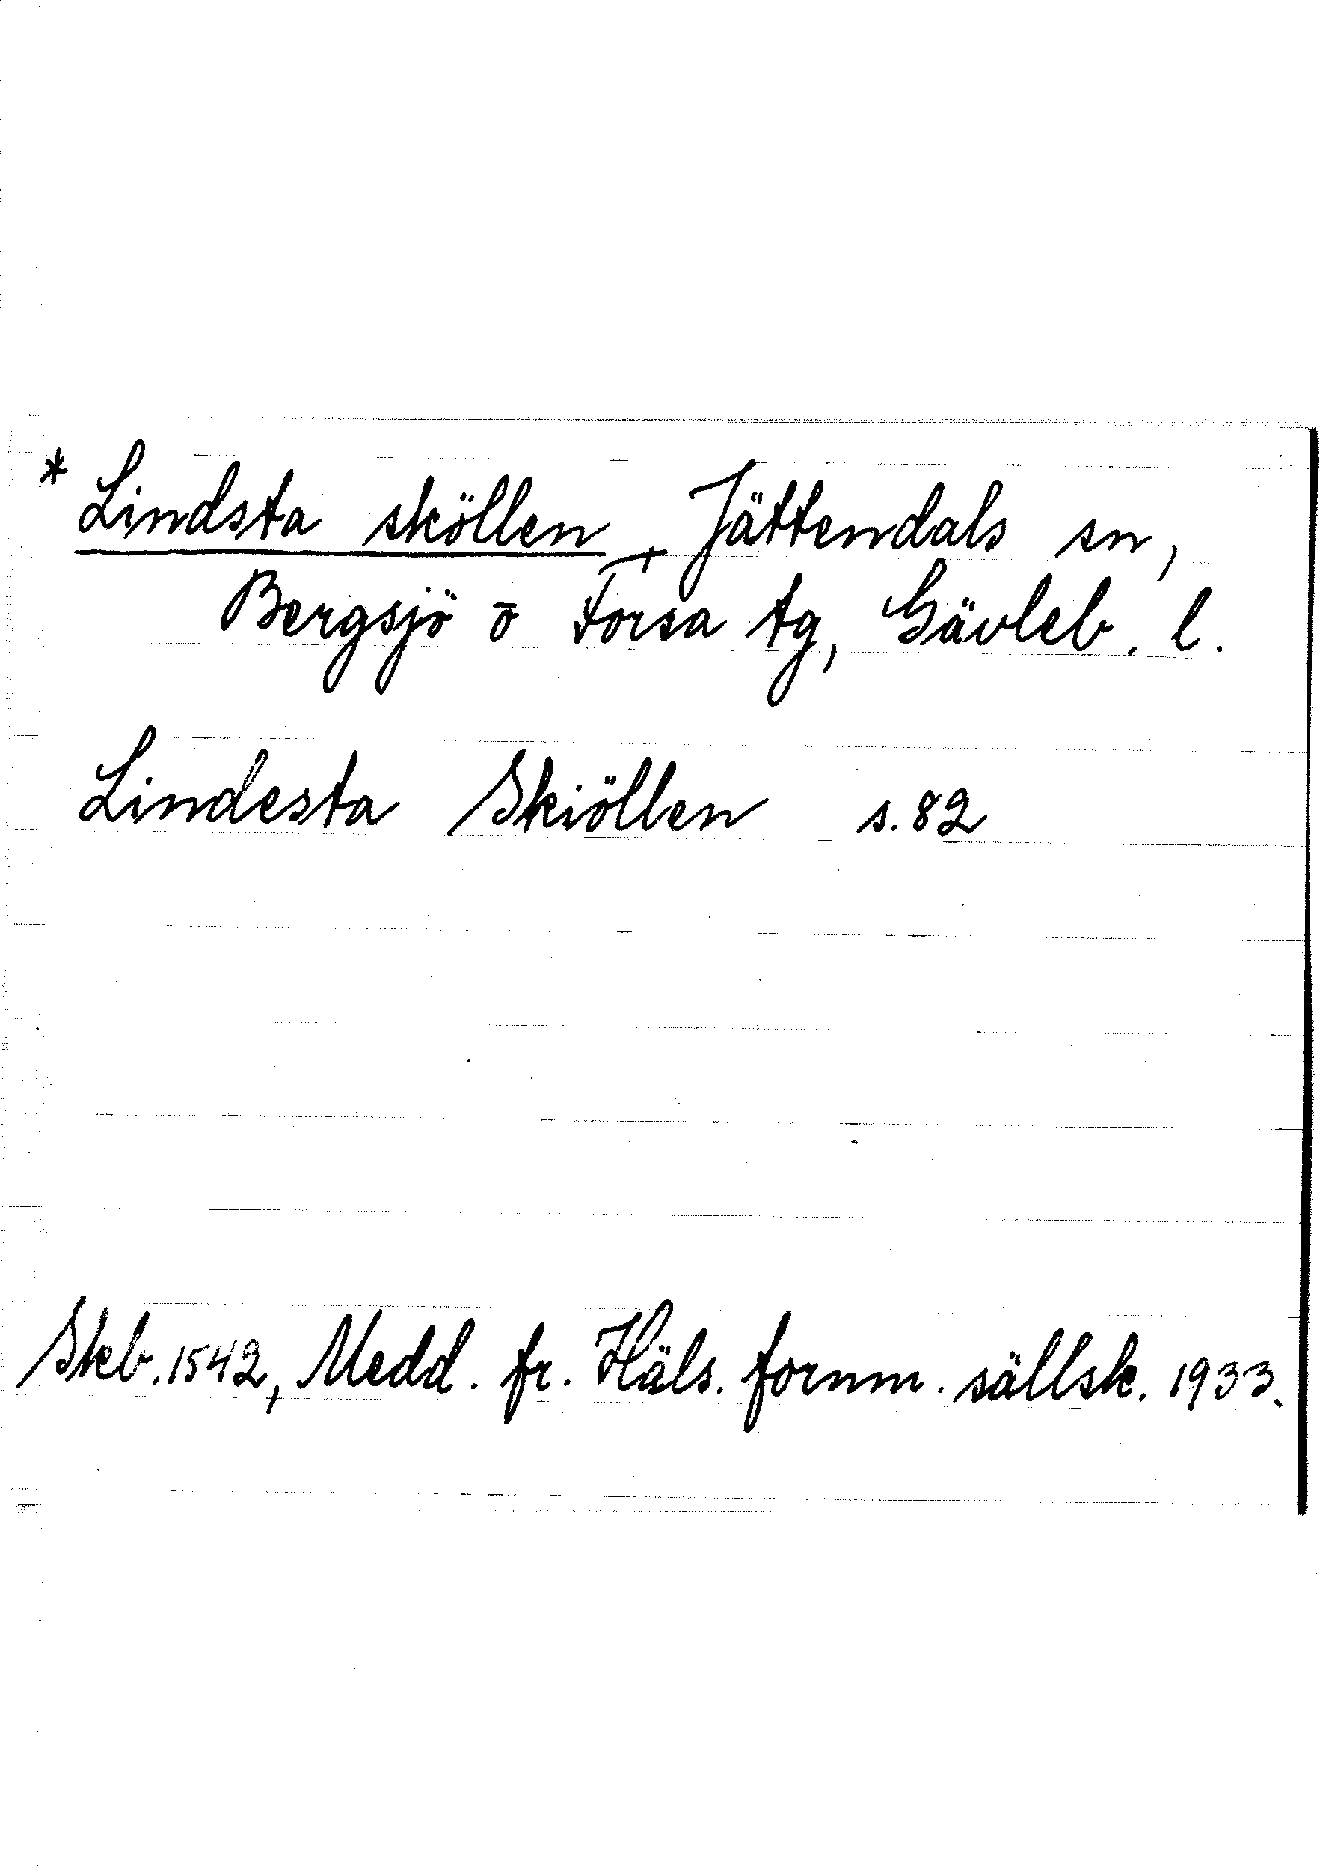 * Lindsta sköllen, Jättendals sn,
Bergsjö o Forsa tg, Gävleb. l.
Lindesta Skiöllen s. 82
Skb. 1542, Medd. fr. Häls. fornm. sällsk. 1933.